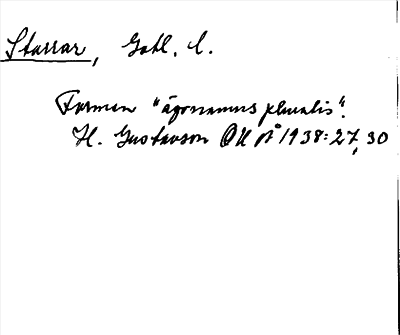 Starrar, Gotl. l.
Formen "ägonamns pluralis".
H. Gustavson OUÅ 1938: 27, 30